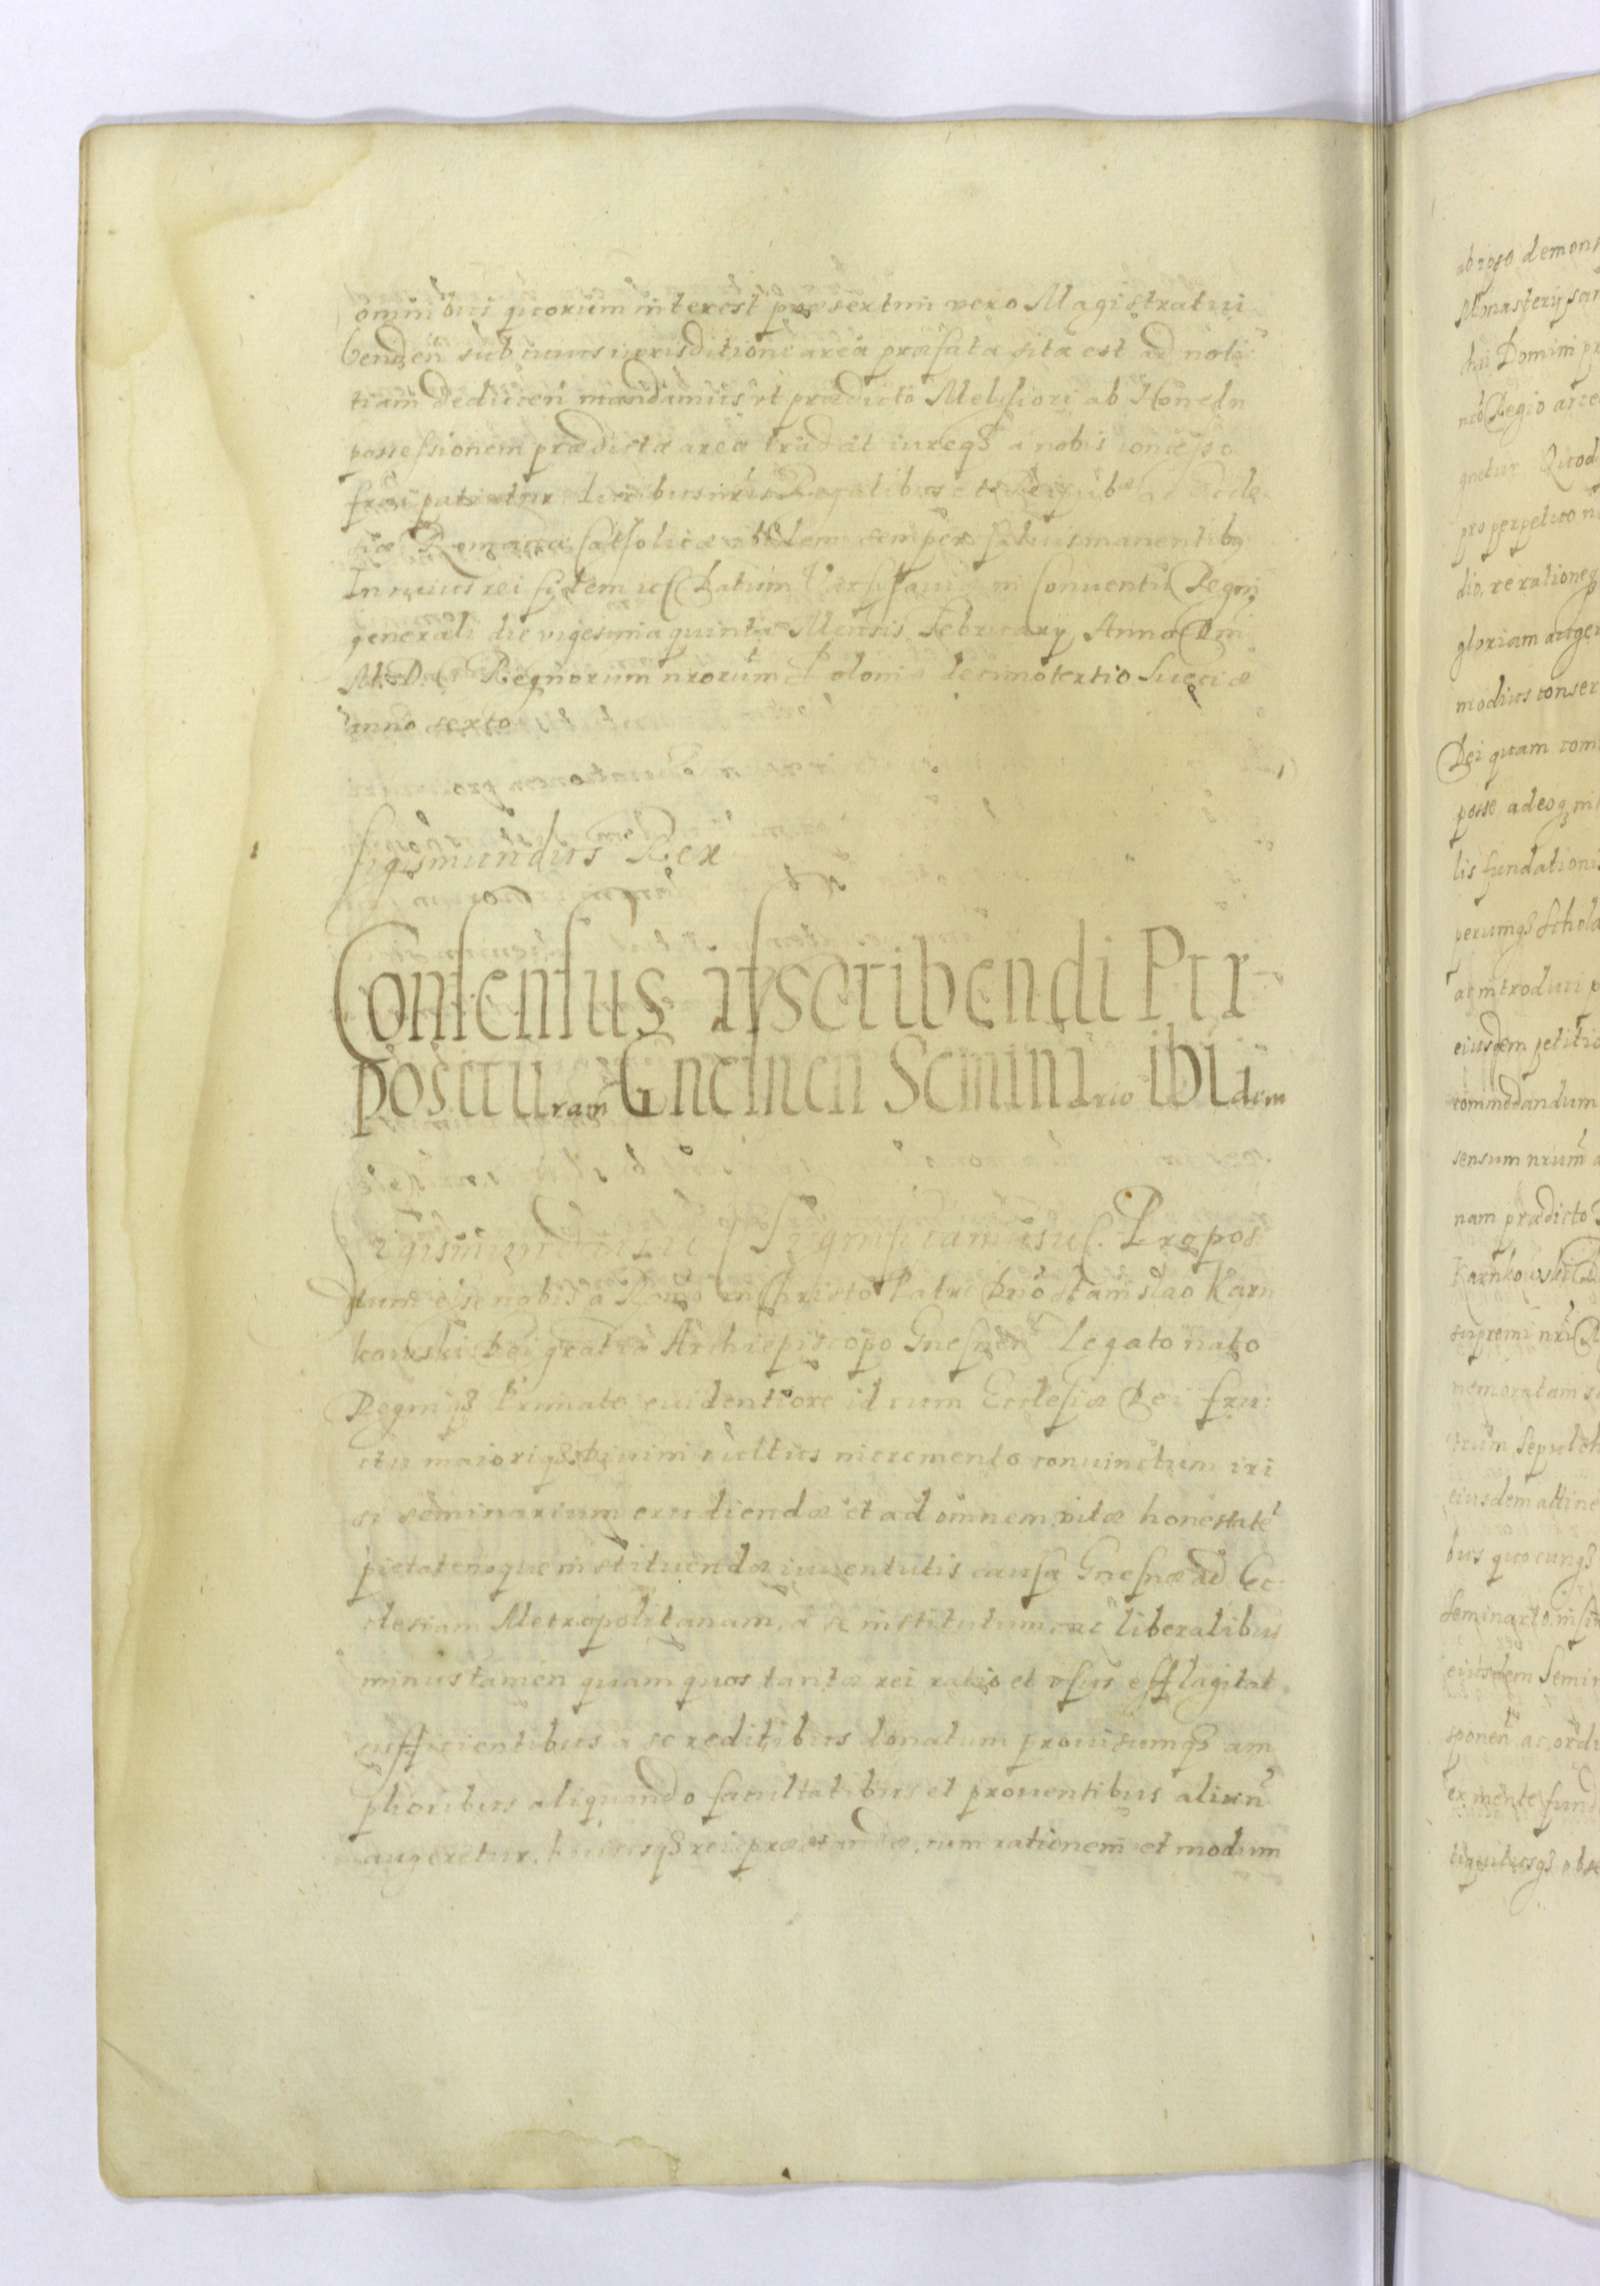 omnibus quorum interest præsertim vero Magistratui
Venden sub cuius iurisditione area præfata sita est ad noti
tiam deducen mandamus vt prædicto Melchiori ab Honeln
possessionem prædictæ areæ tradat iureqȝ a nobis concesso
frui patiatur Iuribus nris Regalibus et Reipub ac Eccle
siæ Romanæ Catholicæ ibidem semper saluis manentibꝯ
In cuius rei fidem uc Datum Varsauiæ in Conuentu Regni
generali die vigesima quinta Mensis February Anno Dni
M.D.C Regnorum nrorum Poloniæ decimotertio Sueciæ
anno sexto
Sigismundus Rex
Consensus asscribendi Præ-
posituram Gnesnen Seminario ibidem
Sigismundus uc Significamus uc. Propos
itum esse nobis a Rndo in Christo Patre Dno Stanislao Karn
kowski Dei gratia Archiepiscopo Gnesnen Legato nato
Regniqȝ Primate euidentiore id cum Ecclesiæ Dei fru
ctu maioriqȝ diuini cultus incremento conuinctum iri
si seminarium erudiendæ et ad omnem vitæ honestatē
pietatemque instituendæ iuuentutis causa Gnesnæ ad Ec
clesiam Metropolitanam, a se institutum nec liberalibus
minus tamen quam quos tantæ rei ratio et vsus efflagitat
sufficientibus a se reditibus donatum prouisumqȝ am
plioribus aliquando facultatibus et prouentibus aliun
augeretur. huiusqȝ rei præstandæ, cum rationem et modum
ab ipso demons
Monastery san
chri Domini pr
nto Regio arce
gnetur Quod
pro perpetuo n
dio, re rationeqȝ
gloriam auger
modius conser
Dei quam com
posse adeoqȝ nih
lis fundationis
perumqȝ Schola
ac introduci p
eiusdem petitio
commodandum
sensum nrum a
nam prædicto
Karnkowski D
supremi nri
memoratam
trum Sepulch
eiusdem attine
bus quocunqȝ
Seminario insti
eiusdem Semin
sponen ac ordi
ex mente fund
tiquitusqȝ obse